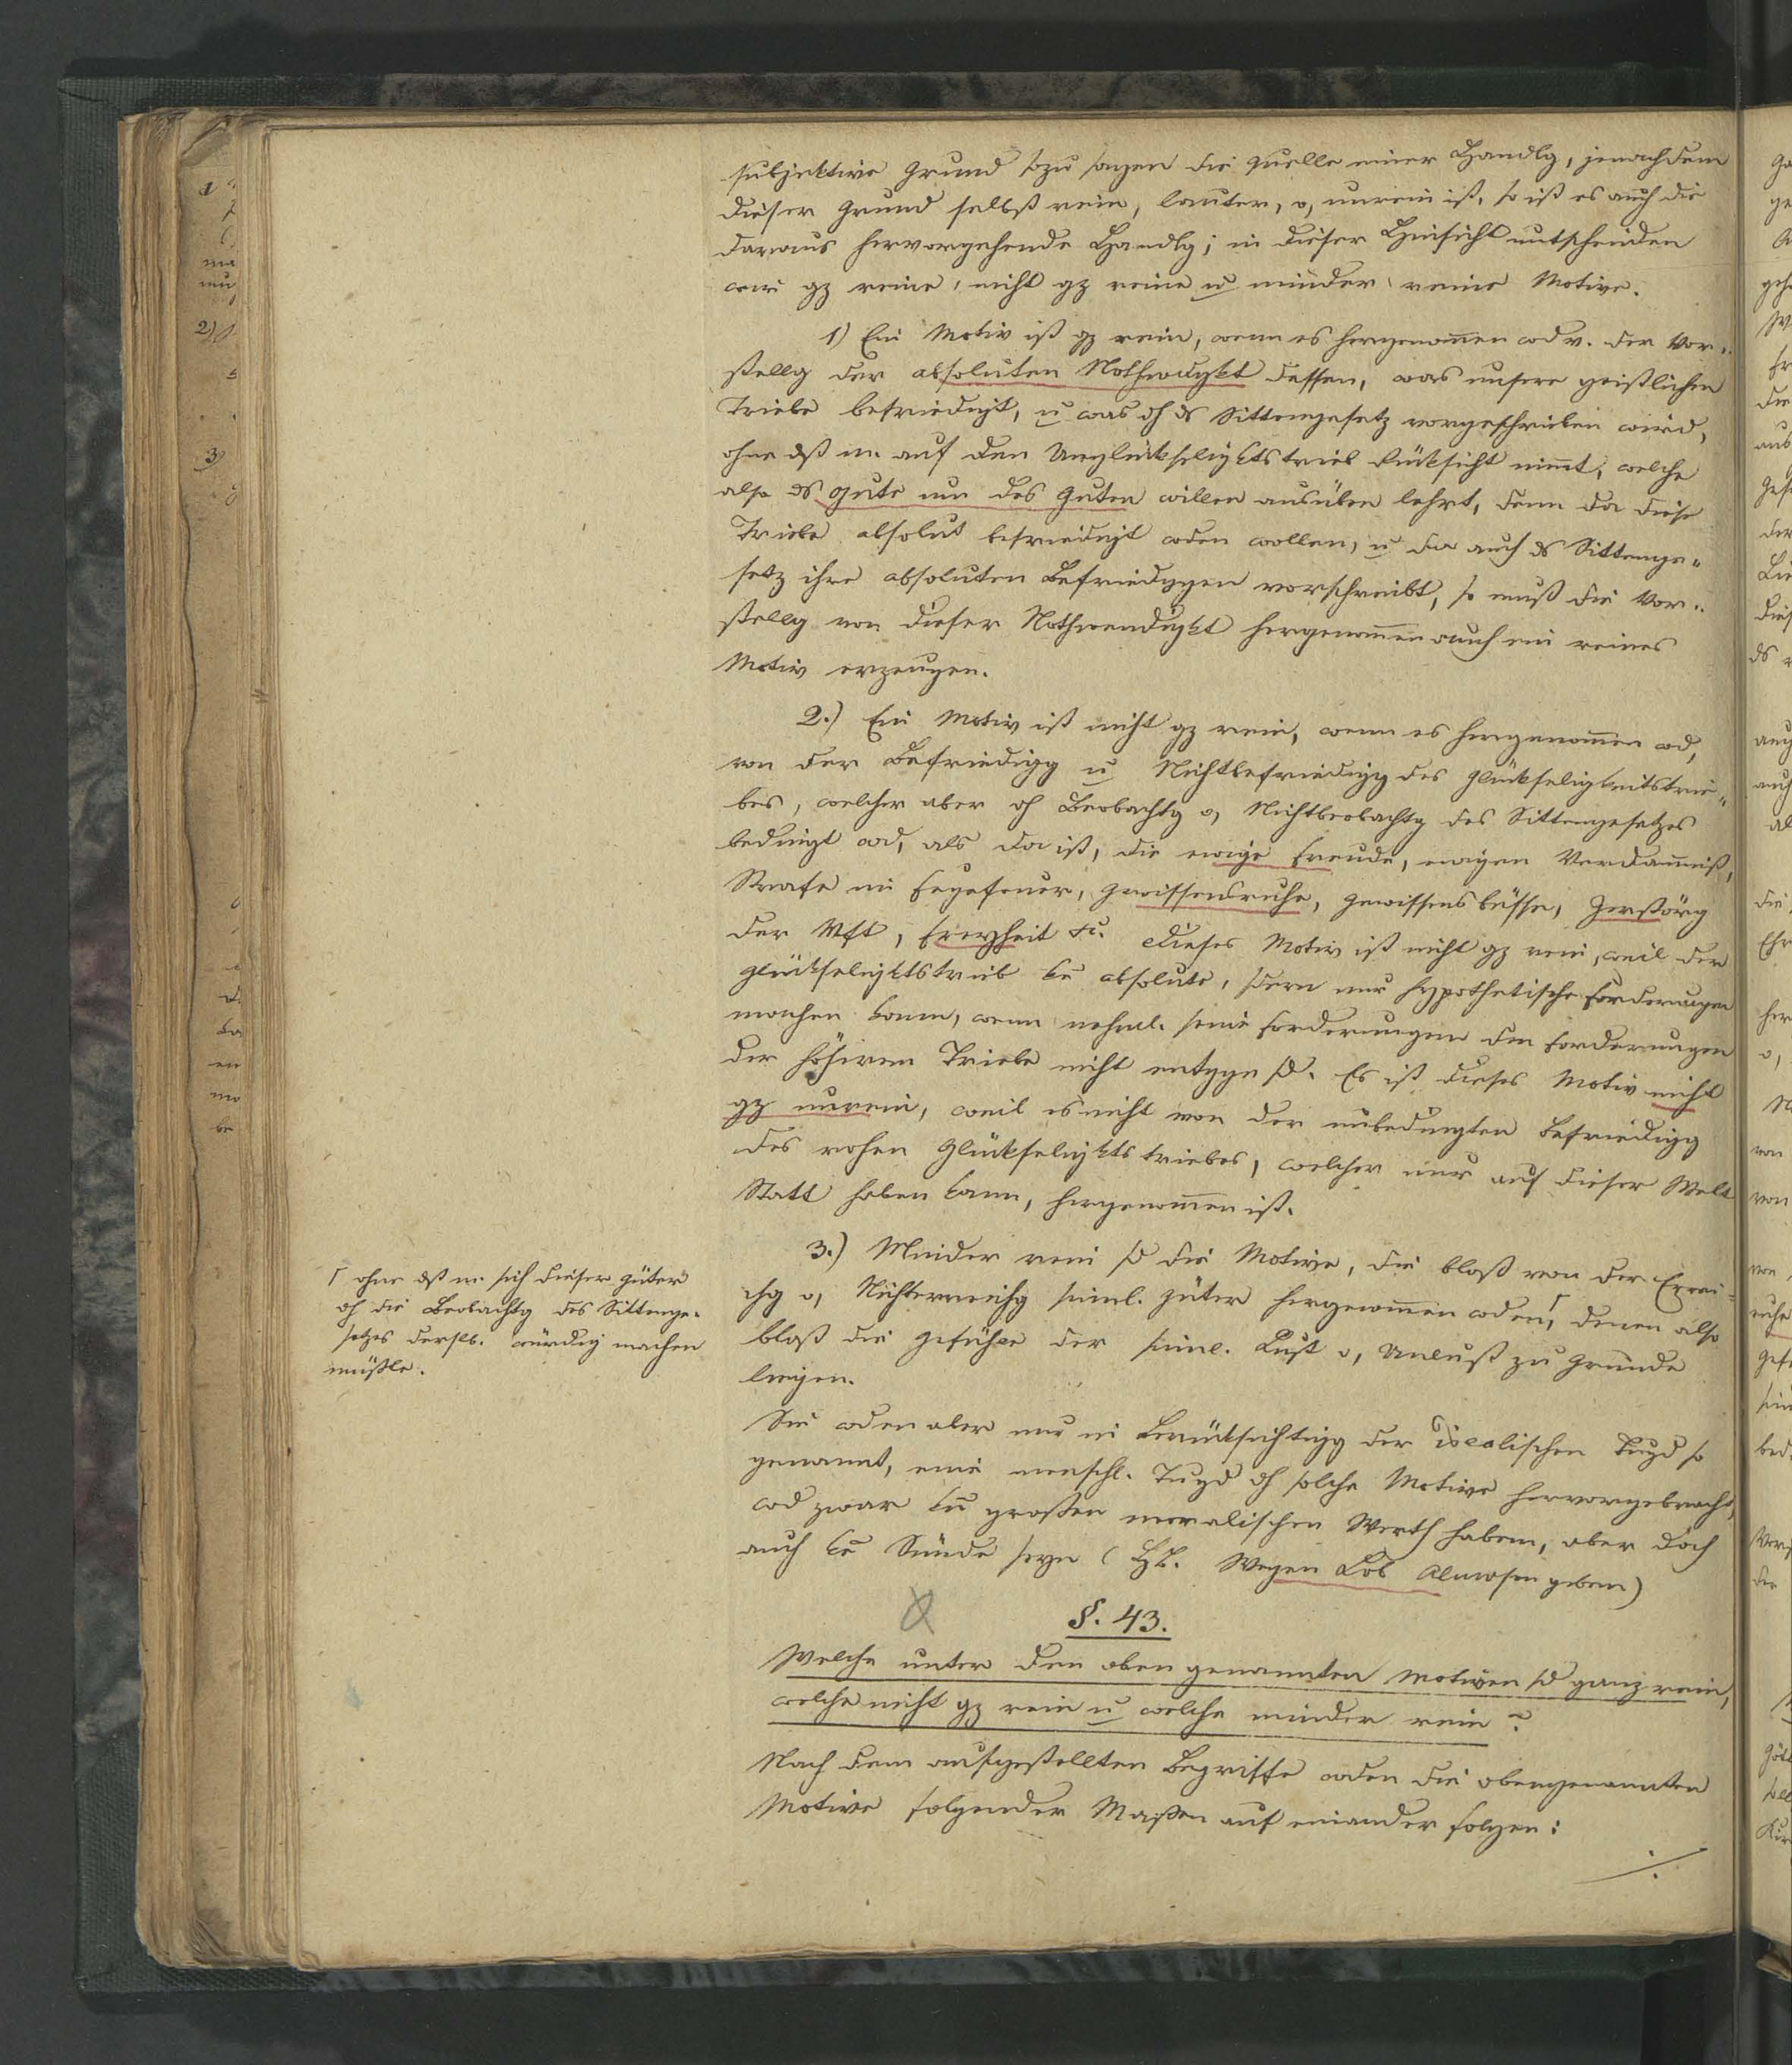 subjektive Grund sozu sagen die Quelle einer Handlg, jenachdem
dieser Grund selbst rein, lauter, o, unrein ist, so ist es auch die
daraus hervorgehende Handlg; in dieser Hinsicht untscheiden
wir gz reine, nicht gz reine u minder reine Motive.
1) Ein Motiv ist gz rein, wenn es hergenom̅en wd v. der Vor-
stellg der absoluten Nothwdgkt dessen, was unsere geistlichen
Triebe befriedigt, u was dh ds Sittengesetz vorgeschrieben wird,
ohne dß m. auf den Unglückseligktstrieb Rücksicht nim̅t, welche
also ds Gute um des Guten willen ausüben lehrt, denn da diese
Triebe absolut befriedigt wden wollen, u da auch ds Sittenge-
setz ihre absoluten Befriediggen vorschreibt, so muß die Vor-
stellg von dieser Nothwendigkt hergenom̅en auch ein reines
Motiv erzeugen.
2.) Ein Motiv ist nicht gz rein, wenn es hergenom̅en wd,
von der Befriedigg u Nichtbefriedigg des Glückseligkeitstrie-
bes, welcher aber dh Beobachtg o, Nichtbeobachtg des Sittengesetzes
bedingt wd, als da ist, die ewige Freude, ewigen Verdam̅niß,
Strafe im Fegefeuer, Gewissensruhe, Gewissensbisse, Zerstörg
der Vft, Freyheit &c. Dieses Motiv ist nicht gz rein, weil der
Glückseligktstrieb ke̅ absolute, sdern nur hypothetische Forderungen
machen kann, wenn nehml. seine Forderungen den Forderungen
der höheren Triebe nicht entggn sd. Es ist dieses Motiv nicht
gz unrein, weil es nicht von der unbedingten Befriedigg
des rohen Glückseligktstriebes, welcher nur auf dieser Welt
Statt haben kann, hergenom̅en ist.
3.) Minder rein sd die Motive, die bloß von der Errei-
chg o, Nichterreichg sinnl. Güter hergenom̅en wden,⌈ denen also
bloß die Gefühle der sinnl. Lust o, Unlust zu Grunde
liegen.
⌈ ohne dß m. sich dieser Güter
dh die Beobachtg des Sittenge-
setzes derslb. würdig machen
müßte.
Sie wden aber nur in Berücksichtigg der idealischen Tugd so
genannt, eine menschl. Tugd dh solche Motive hervorgebracht,
wd zwar kn̅ großen moralischen Werth haben, aber doch
auch ke̅ Sünde seyn (Wegen Lob Almosen geben)
§. 43.
Welche unter den oben genannten Motiven sd ganz rein,
welche nicht gz rein u welche minder rein?
Nach dem aufgestellten Begriffe wden die obengenannten
Motive folgender Maßen auf einander folgen: